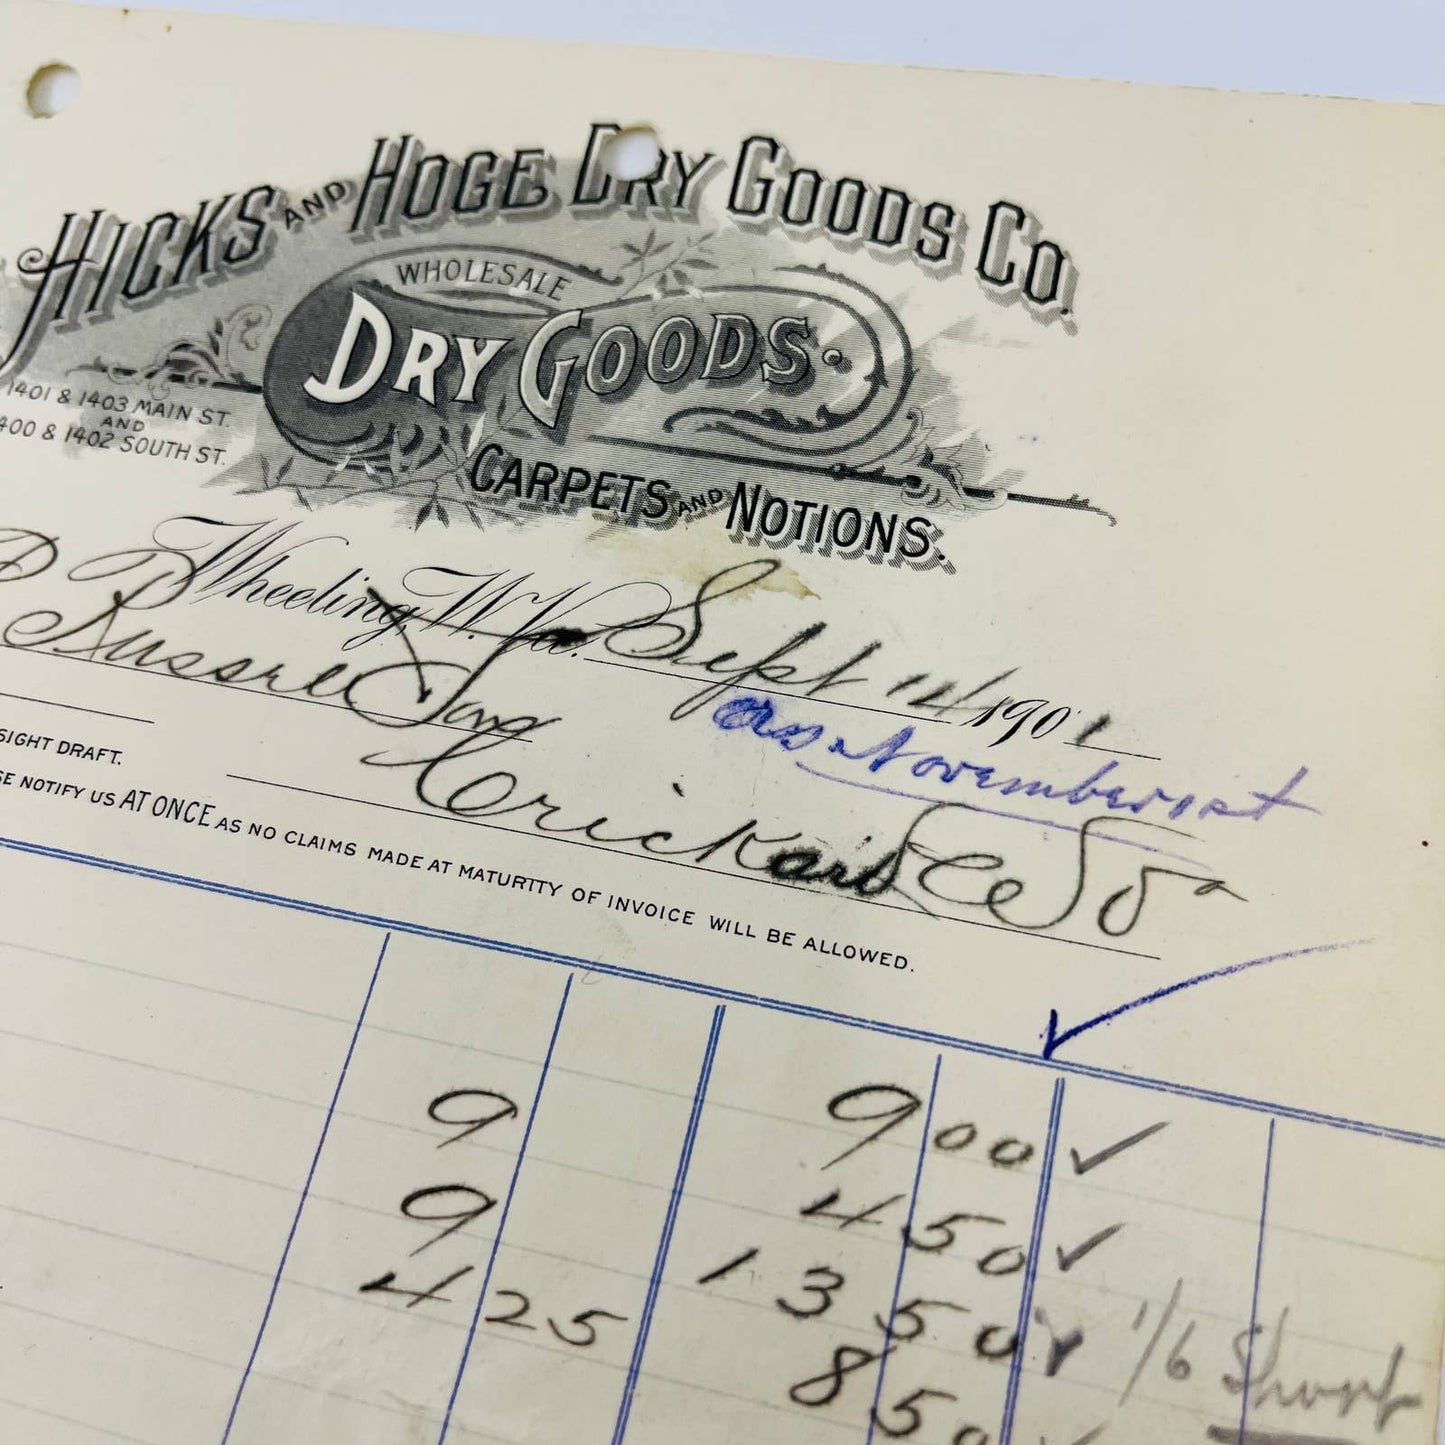 HICKS AND HOGE DRY GOODS CO.
WHOLESALE
DRY GOODS.
CARPETS AND NOTIONS.
1401 & 1403 MAIN ST.
AND
400 & 1402 SOUTH ST.
Wheeling, W. Va. Sept 14 1901
November 1st
SIGHT DRAFT.
SE NOTIFY US AT ONCE AS NO CLAIMS MADE AT MATURITY OF INVOICE WILL BE ALLOWED.
9 9 00 ✓
9 4 50 ✓
4 25 13 50 1/6 Short
8 50